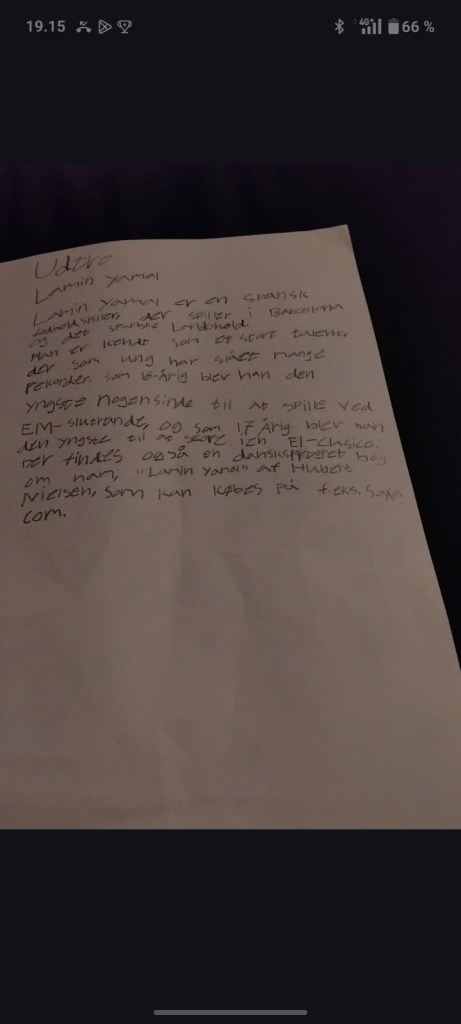 19.15
4G+
66 %
Udtro
Lamin Yamal
Lamin Yamal er en spansk
fodboldspiller, der spiller i Barcelona
og det spanske landshold.
Han er kendt som et stort talent,
der som ung har slået mange
rekorder. Som 16-årig blev han den
yngste nogensinde til at spille ved
EM-slutrunde, og som 17 årig blev han
den yngste til at score i en El-Clasico.
Der findes også en dansksproget bog
om ham, "Lamin Yamal" af Hubert
Nielsen, som kan købes på f.eks. Saxo
com.